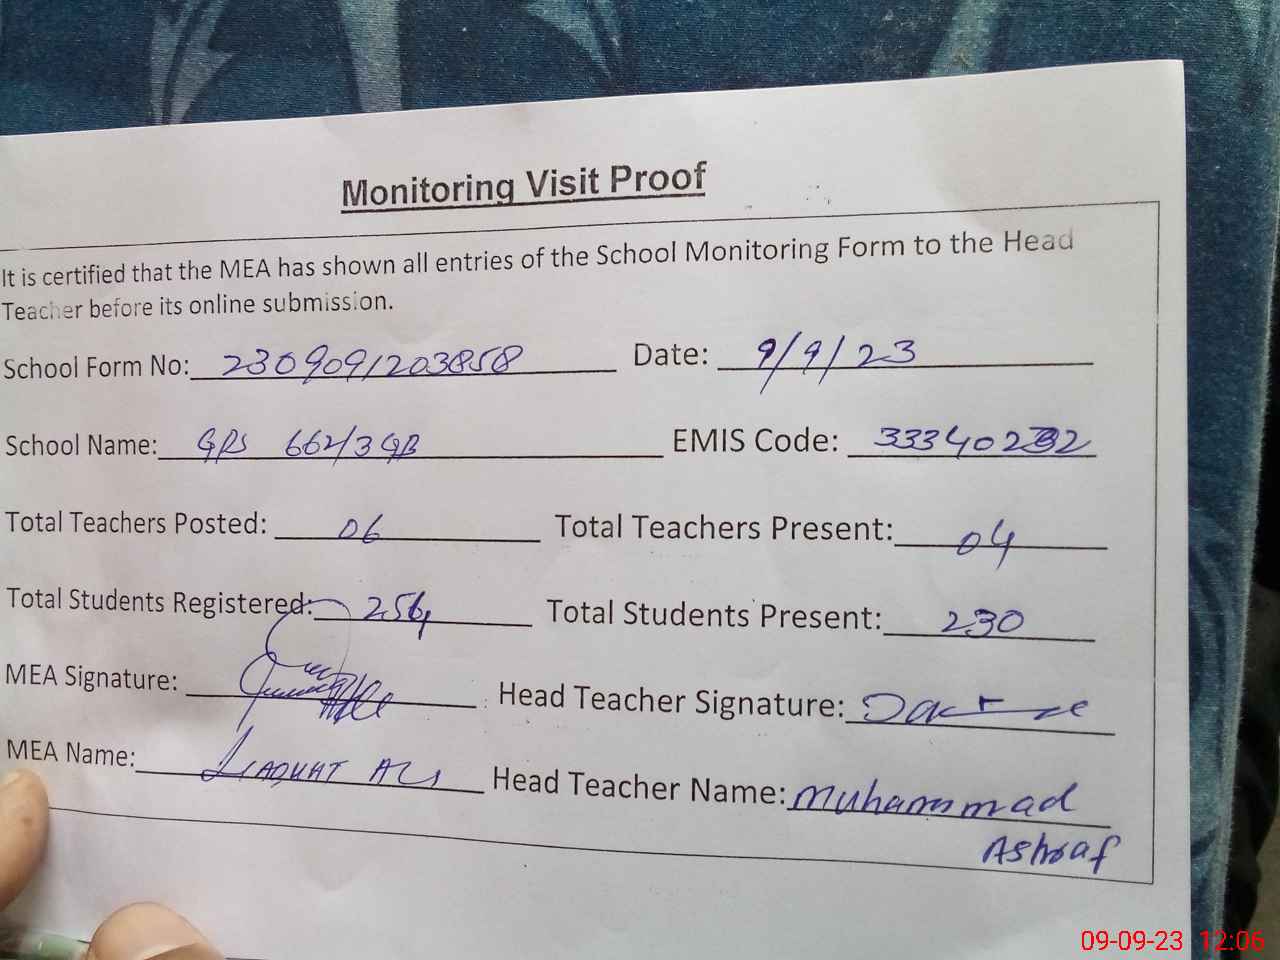 Monitoring Visit Proof
It is certified that the MEA has shown all entries of the School Monitoring Form to the Head
Teacher before its online submission.
School Form No: 2309091203858 Date: 9/9/23
School Name: GPS 662/3 GB EMIS Code: 33340232
Total Teachers Posted: 06 Total Teachers Present: 04
Total Students Registered: 254 Total Students Present: 230
MEA Signature: Head Teacher Signature:
MEA Name: LIAQUAT ALI Head Teacher Name: Muhammad
Ashraf
09-09-23 12:06